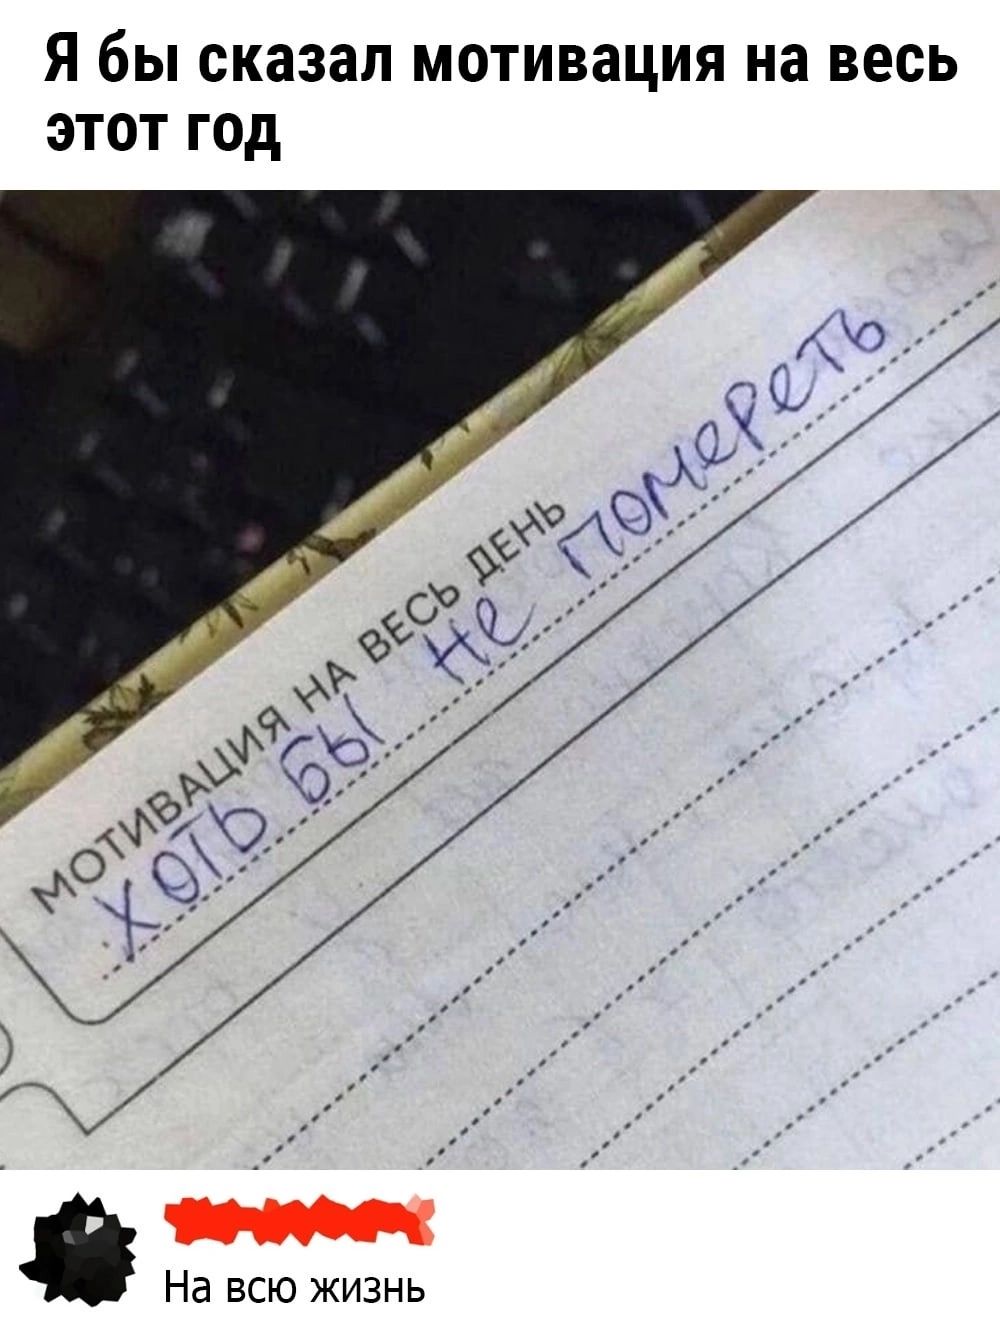 Я бы сказал мотивация на весь
этот год
МОТИВАЦИЯ НА ВЕСЬ ДЕНЬ
ХОТЬ БЫ не помереть
На всю жизнь